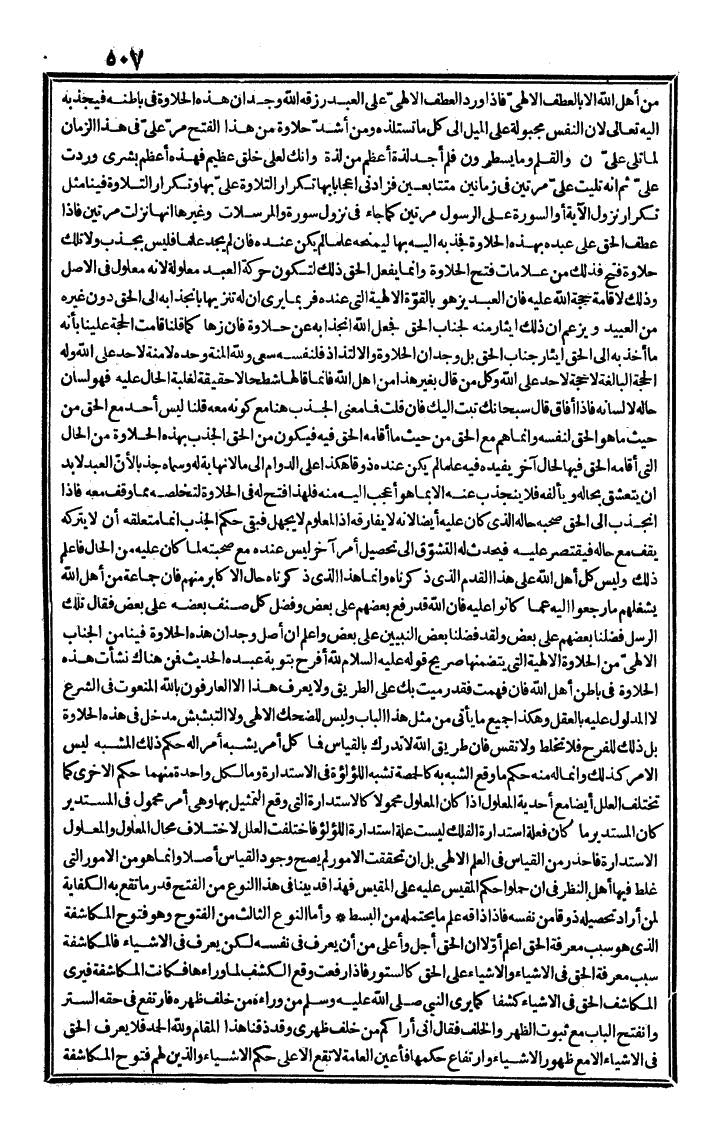 ٥٠٧
من أهل الله الا بالعطف الالهىّ فاذا ورد العطف الالهىّ على العبد رزقه الله وجدان هذه الحلاوة فى باطنه فيجذبه
اليه تعالى لان النفس مجبولة على الميل الى كل ما تستلذه ومن أشدّ حلاوة من هذا الفتح مرّ علىّ فى هذا الزمان
لما تلى علىّ ن والقلم وما يسطرون فلم أجد لذة أعظم من لذة وانك لعلى خلق عظيم فهذه أعظم بشرى وردت
علىّ ثم انه تليت علىّ مرتين فى زمانين متتابعين فزادنى اعجابا بها تكرار التلاوة علىّ بها وتكرار التلاوة فينا مثل
تكرار نزول الآية أو السورة على الرسول مرتين كما جاء فى نزول سورة والمرسلات وغيرها انها نزلت مرتين فاذا
عطف الحق على عبده بهذه الحلاوة جذبه اليه بها ليمنحه علما لم يكن عنده فان لم يجد علما فليس بجذب ولا تلك
حلاوة فتح فذلك من علامات فتح الحلاوة وانما يفعل الحق ذلك لتكون حركة العبد معلولة لانه معلول فى الاصل
وذلك لاقامة حجة الله عليه فان العبد يزهو بالقوّة الالهية التى عنده فربما يرى ان له تنزيها بانجذابه الى الحق دون غيره
من العبيد ويزعم ان ذلك ايثار منه لجناب الحق فجعل الله انجذابه عن حلاوة فان زها كما قلنا قامت الحجة علينا بأنه
ما أخذ به الى الحق ايثار جناب الحق بل وجدان الحلاوة والالتذاذ فلنفسه سعى ولله المنة وحده لا منة لاحد على الله وله
الحجة البالغة لا حجة لاحد على الله وكل من قال بغير هذا من اهل الله فانما قالها شطحا لا حقيقة لغلبة الحال عليه فهو لسان
حاله لا لسانه فاذا أفاق قال سبحانك تبت اليك فان قلت فما معنى الجذب هنا مع كونه معه قلنا ليس أحد مع الحق من
حيث ما هو الحق لنفسه وانما هم مع الحق من حيث ما أقامه الحق فيه فيكون من الحق الجذب بهذه الحلاوة من الحال
التى أقامه الحق فيها لحال آخر يفيده فيه علما لم يكن عنده ذوقا هكذا على الدوام الى ما لا نهاية له وسماه جذبا لأن العبد لابد
ان يتعشق بحاله ويألفه فلا ينجذب عنه الا بما هو أعجب اليه منه فلهذا فتح له فى الحلاوة لتخلصه مما وقف معه فاذا
انجذب الى الحق صحبه حاله الذى كان عليه أيضا لانه لا يفارقه اذ المعلوم لا يجهل فبقى حكم الجذب انما متعلقه أن لا يتركه
يقف مع حاله فيقتصر عليه فيحدث له التشوّق الى تحصيل أمر آخر ليس عنده مع صحبته لما كان عليه من الحال فاعلم
ذلك وليس كل أهل الله على هذا القدم الذى ذكرناه وانما هذا الذى ذكرناه حال الاكابر منهم فان جماعة من أهل الله
يشغلهم ما رجعوا اليه عما كانوا عليه فان الله قد رفع بعضهم على بعض وفضل كل صنف بعضه على بعض فقال تلك
الرسل فضلنا بعضهم على بعض ولقد فضلنا بعض النبيين على بعض واعلم ان أصل وجدان هذه الحلاوة فينا من الجناب
الالهىّ من الحلاوة الالهية التى يتضمنها صريح قوله عليه السلام لله أفرح بتوبة عبده الحديث فمن هناك نشأت هذه
الحلاوة فى باطن أهل الله فان فهمت فقد رميت بك على الطريق ولا يعرف هذا الا العارفون بالله المنعوت فى الشرع
لا المدلول عليه بالعقل وهكذا جميع ما يأتى من مثل هذا الباب وليس للضحك الالهى ولا التبشبش مدخل فى هذه الحلاوة
بل ذلك للفرح فلا تخلط ولا تقس فان طريق الله لا تدرك بالقياس فما كل أمر يشبه أمرا له حكم ذلك المشبه ليس
الامر كذلك وانما له منه حكم ما وقع الشبه به كالحصة تشبه اللؤلؤة فى الاستدارة وما لكل واحدة منهما حكم الاخرى كما
تختلف العلل أيضا مع أحدية المعلول اذا كان المعلول محمولا كالاستدارة التى وقع التمثيل بها وهى أمر محمول فى المستدير
كان المستدير ما كان فعلة استدارة الفلك ليست علة استدارة اللؤلؤ فاختلفت العلل لاختلاف محال المعلول والمعلول
الاستدارة فاحذر من القياس فى العلم الالهى بل ان تحققت الامور لم يصح وجود القياس أصلا وانما هو من الامور التى
غلط فيها أهل النظر فى ان حملوا حكم المقيس عليه على المقيس فهذا قد بينا فى هذا النوع من الفتح قدر ما تقع به الكفاية
لمن أراد تحصيله ذوقا من نفسه فاذا ذاقه علم ما يحتمله من البسط * وأما النوع الثالث من الفتوح وهو فتوح المكاشفة
الذى هو سبب معرفة الحق اعلم أوّلا ان الحق أجل وأعلى من أن يعرف فى نفسه لكن يعرف فى الاشياء فالمكاشفة
سبب معرفة الحق فى الاشياء والاشياء على الحق كالستور فاذا رفعت وقع الكشف لما وراءها فكانت المكاشفة فيرى
المكاشف الحق فى الاشياء كشفا كما يرى النبى صلى الله عليه وسلم من وراءه من خلف ظهره فارتفع فى حقه الستر
وانفتح الباب مع ثبوت الظهر والخلف فقال انى أراكم من خلف ظهرى وقد ذقنا هذا المقام ولله الحمد فلا يعرف الحق
فى الاشياء الا مع ظهور الاشياء وارتفاع حكمها فأعين العامة لا تقع الا على حكم الاشياء والذين لهم فتوح المكاشفة